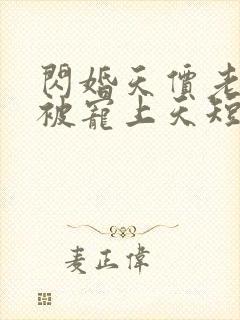 閃婚天價老
被寵上天短
麦正偉